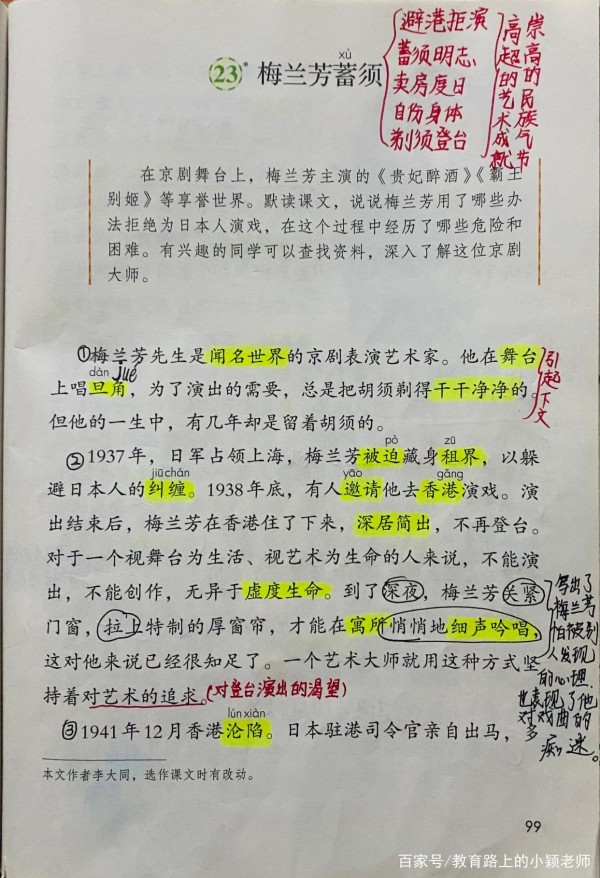 xù
23* 梅兰芳蓄须
避港拒演
蓄须明志
卖房度日
自伤身体
剃须登台
崇高的民族气节
高超的艺术成就
在京剧舞台上，梅兰芳主演的《贵妃醉酒》《霸王
别姬》等享誉世界。默读课文，说说梅兰芳用了哪些办
法拒绝为日本人演戏，在这个过程中经历了哪些危险和
困难。有兴趣的同学可以查找资料，深入了解这位京剧
大师。
①梅兰芳先生是闻名世界的京剧表演艺术家。他在舞台
dàn jué
上唱旦角，为了演出的需要，总是把胡须剃得干干净净的。
但他的一生中，有几年却是留着胡须的。
引起下文
pò zū
②1937年，日军占领上海，梅兰芳被迫藏身租界，以躲
jiūchán yāo gǎng
避日本人的纠缠。1938年底，有人邀请他去香港演戏。演
出结束后，梅兰芳在香港住了下来，深居简出，不再登台。
对于一个视舞台为生活、视艺术为生命的人来说，不能演
出，不能创作，无异于虚度生命。到了深夜，梅兰芳关紧
门窗，拉上特制的厚窗帘，才能在寓所悄悄地细声吟唱，
这对他来说已经很知足了。一个艺术大师就用这种方式坚
持着对艺术的追求。(对登台演出的渴望)
写出了
梅兰芳
怕被别
人发现
的心理，
也表现了他
对戏曲的
痴迷。
lúnxiàn
③1941年12月香港沦陷。日本驻港司令官亲自出马，多
本文作者李大同，选作课文时有改动。
99
百家号/教育路上的小颖老师